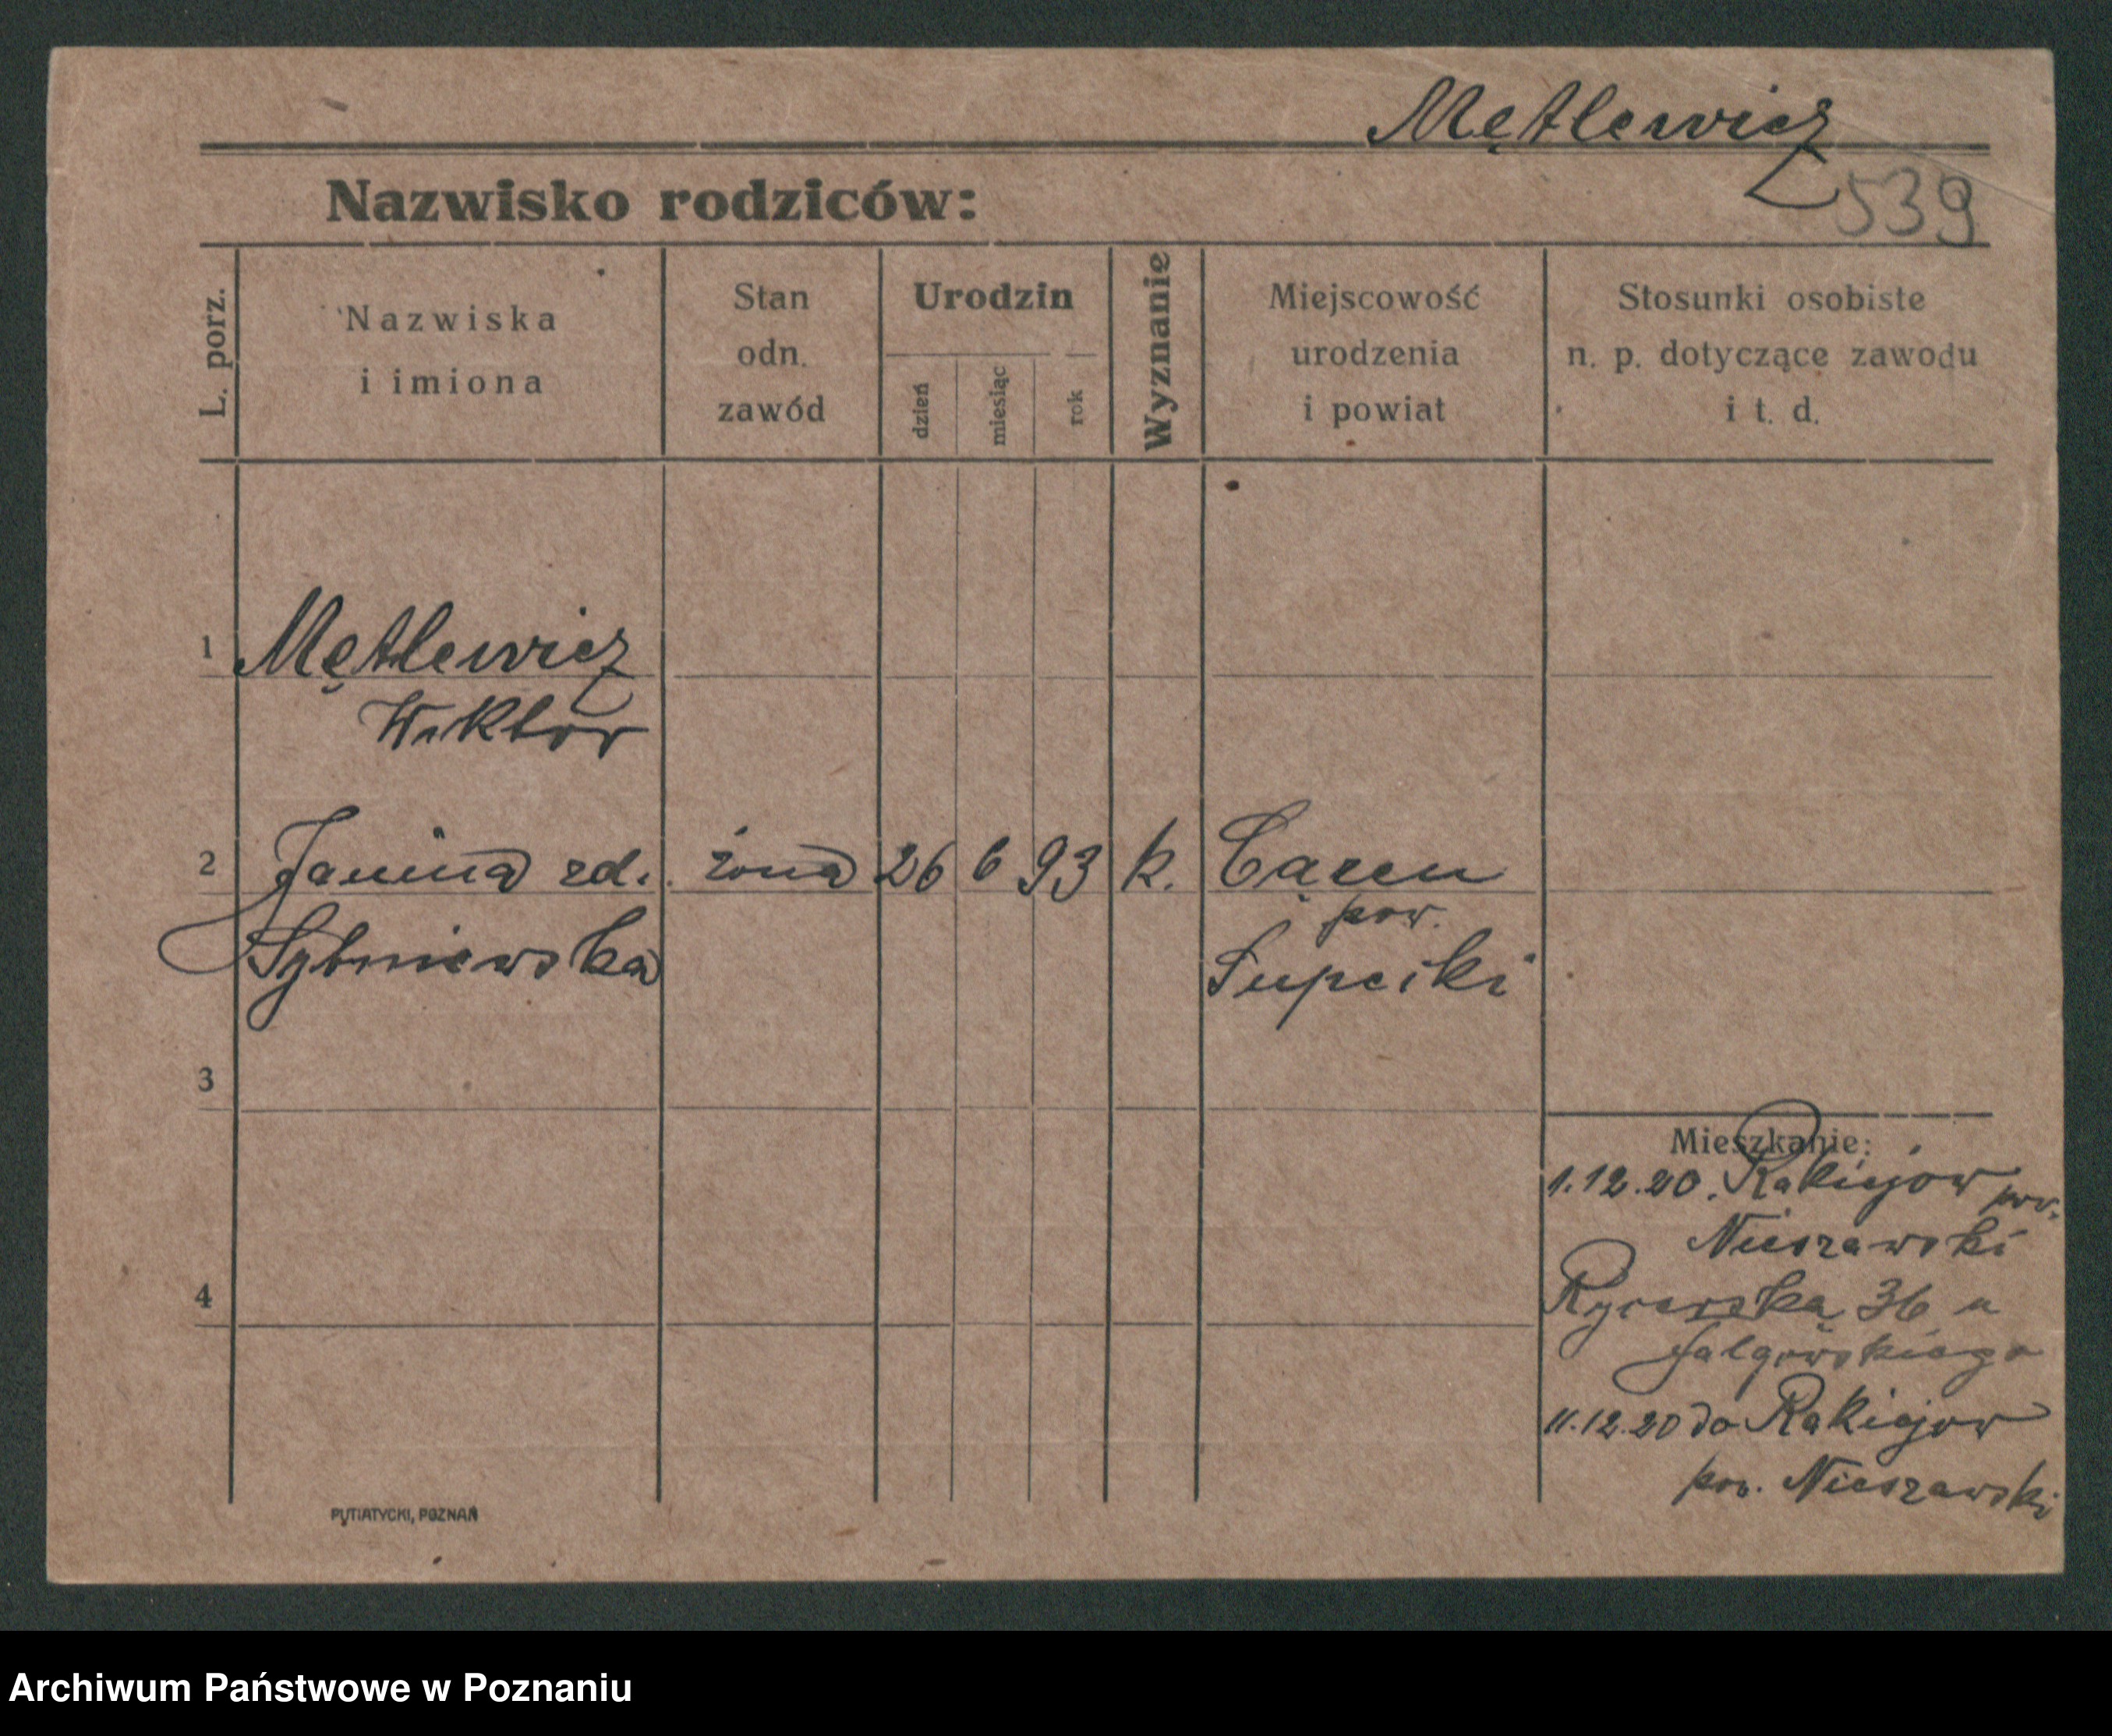 Mętlewicz
Nazwisko rodziców:
539
L. porz.
Nazwiska
i imiona
Stan
odn.
zawód
Urodzin
dzień
miesiąc
rok
Wyznanie
Miejscowość
urodzenia
i powiat
Stosunki osobiste
n. p. dotyczące zawodu
i t. d.
1 Mętlewicz
Wiktor
2 Janina zd. żona 26 6 93 k. Cązen
pow.
Sybniewska Supecki
3
Mieszkanie:
1.12.20. Rakiejow pow.
Nieszawski
4 Rycerska 36 u
Jalgowskiego
11.12.20 do Rakiejow
pow. Nieszawski
PUTIATYCKI, POZNAŃ
Archiwum Państwowe w Poznaniu